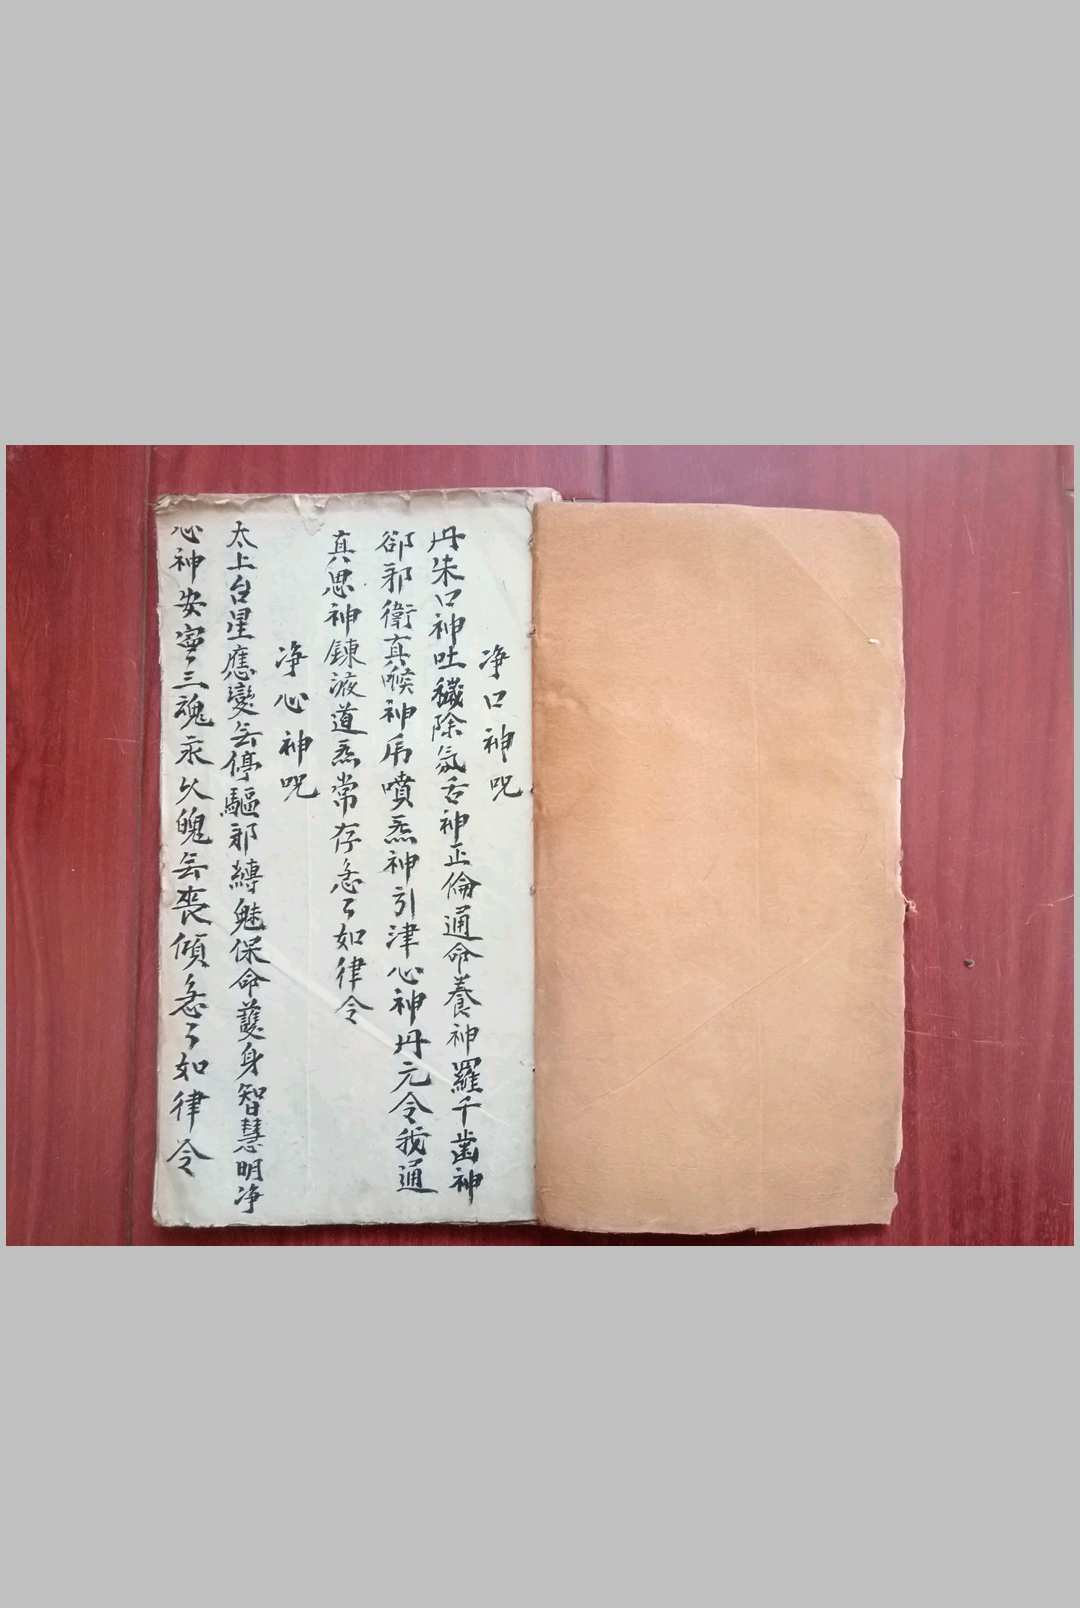 净口神咒
丹朱口神吐穢除氛舌神正倫通命養神羅千齒神
郤邪衛真喉神虎噴炁神引津心神丹元令我通
真思神鍊液道炁常存急々如律令
净心神咒
太上台星應變无停驅邪縛魅保命護身智慧明净
心神安寧三魂永久魄无喪傾急々如律令